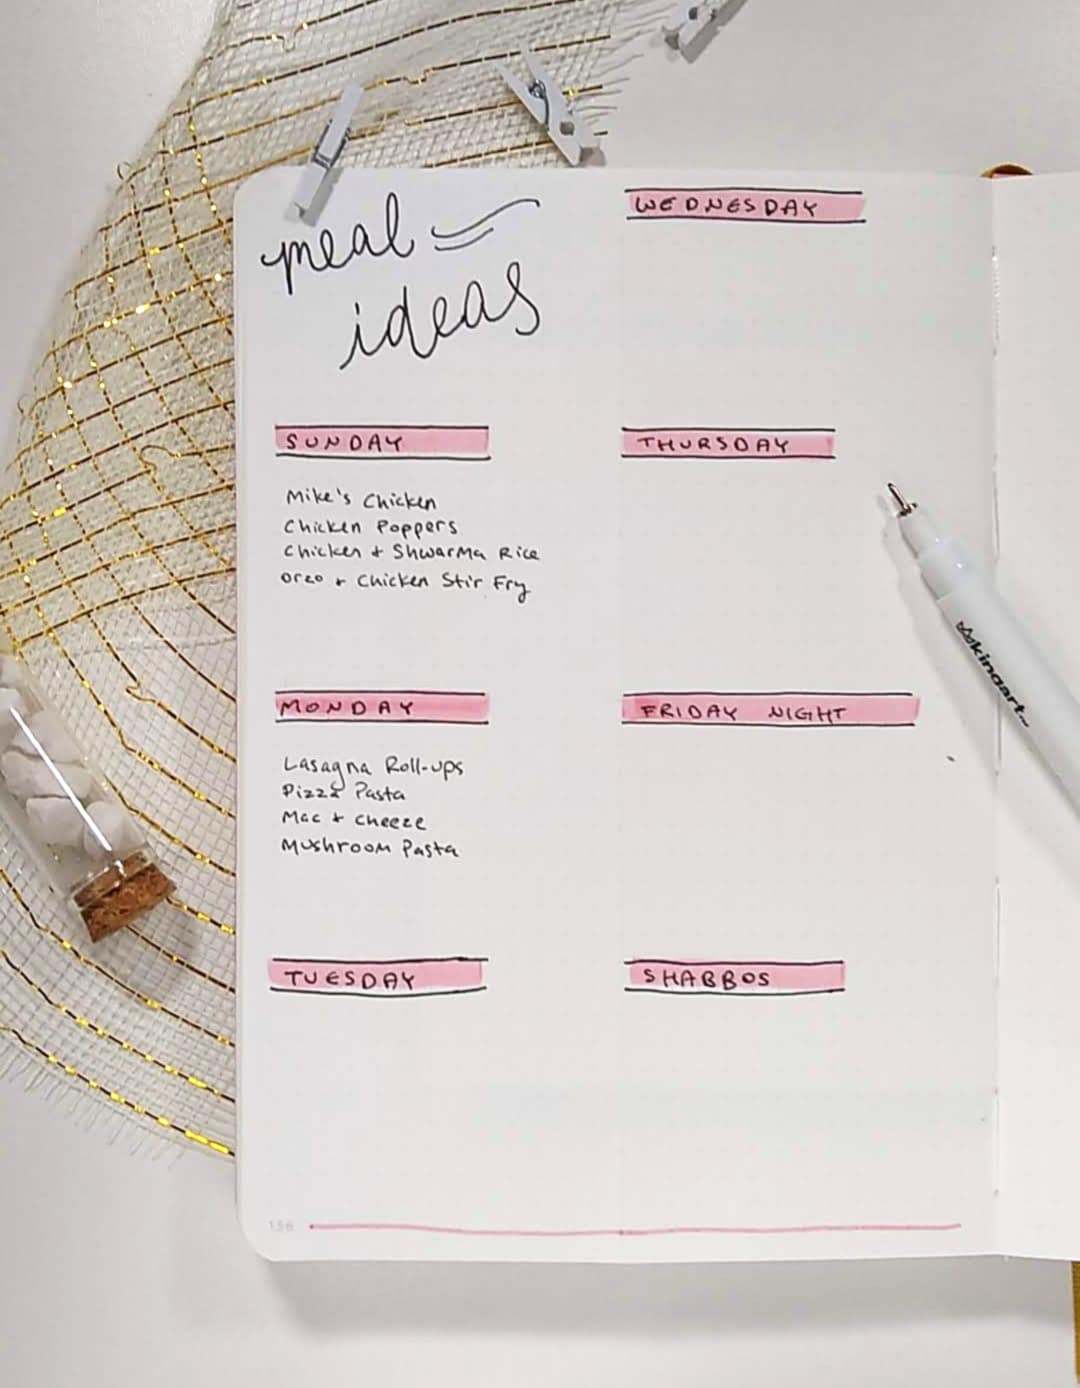 meal
ideas
SUNDAY
Mike's Chicken
Chicken Poppers
Chicken + Shwarma Rice
Orzo + Chicken Stir Fry
MONDAY
Lasagna Roll-ups
Pizza Pasta
Mac + Cheeze
Mushroom Pasta
TUESDAY
WEDNESDAY
THURSDAY
FRIDAY NIGHT
SHABBOS
kingart